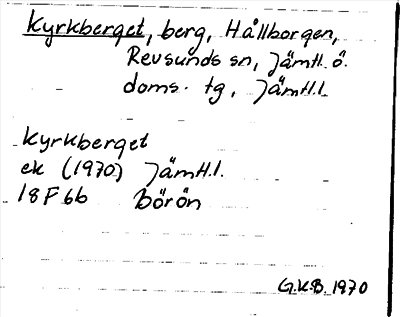 Kyrkberget, berg, Hållborgen,
Revsunds sn, Jämtl. ö.
doms. tg, Jämtl.l.
Kyrkberget
ek (1970) Jämtl.l.
18F6b Börön
G.K.B. 1970